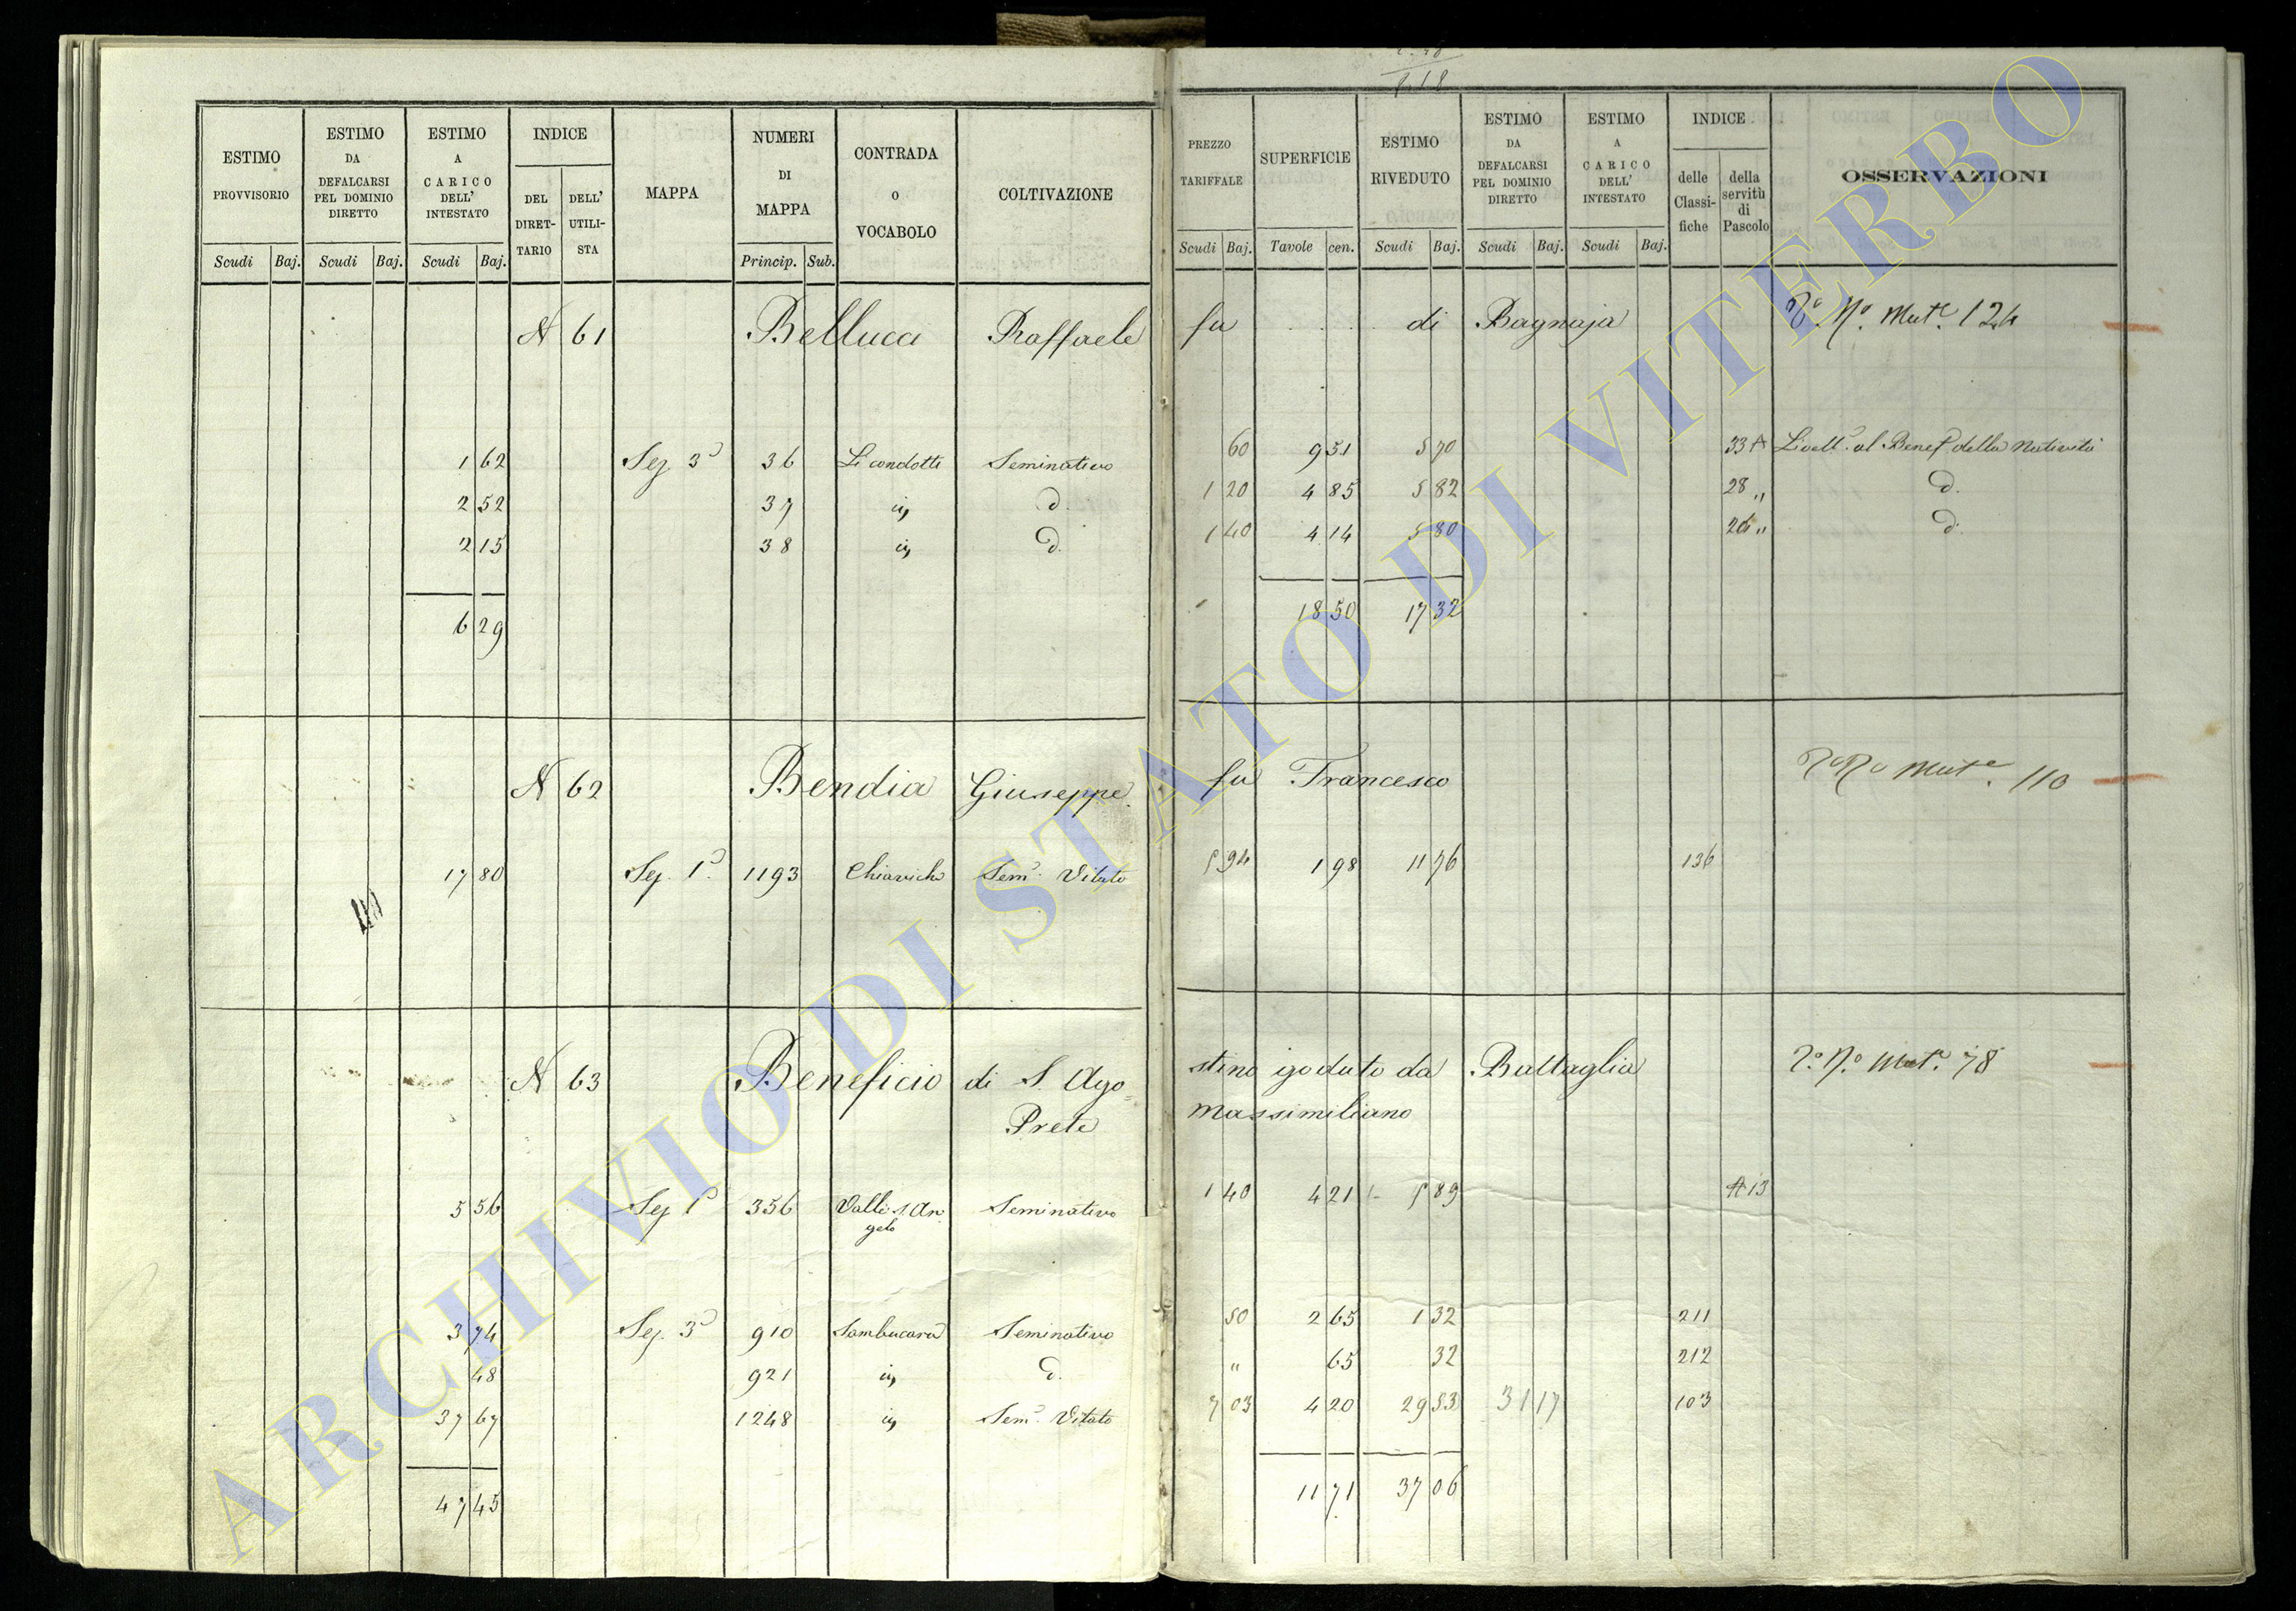 ESTIMO PROVVISORIO Scudi Baj. ESTIMO DA DEFALCARSI PEL DOMINIO DIRETTO Scudi Baj. ESTIMO A CARICO DELL' INTESTATO Scudi Baj. INDICE DEL DIRETTARIO DELL' UTILISTA MAPPA NUMERI DI MAPPA Princip. Sub. CONTRADA O VOCABOLO COLTIVAZIONE PREZZO TARIFFALE Scudi Baj. SUPERFICIE Tavole cen. ESTIMO RIVEDUTO Scudi Baj. ESTIMO DA DEFALCARSI PEL DOMINIO DIRETTO Scudi Baj. ESTIMO A CARICO DELL' INTESTATO Scudi Baj. INDICE delle Classifiche della servitù di Pascolo OSSERVAZIONI
N 61 Bellucci Raffaele fu . . . . di Bagnaja Mut.e 124
1 62 Sez. 3a 36 Li condotti Seminativo 60 9 51 5 70 33 A Livell.o al Benef.o della Natività
2 52 37 iv, d. 1 20 4 85 5 82 28 " d.
2 15 38 iv, d. 1 40 4 14 5 80 26 " d.
6 29 18 50 17 32
N 62 Bendia Giuseppe fu Francesco Mut.e 110
17 80 Sez. 1a 1193 Chiaviche Sem.o Vitato 5 94 1 98 11 76 136
N 63 Beneficio di S. Ago= stino goduto da Battaglia Mut.e 78
Prete Massimiliano
5 56 Sez 1a 356 Valle S. An gelo Seminativo 1 40 4 21 5 89 A 13
3 74 Sez. 3a 910 Sambucara Seminativo 50 2 65 1 32 211
48 921 iv, d. " 65 32 212
37 67 1248 iv, Sem.o Vitato 7 03 4 20 29 53 31 17 103
47 45 11 71 37 06
ARCHIVIO DI STATO DI VITERBO